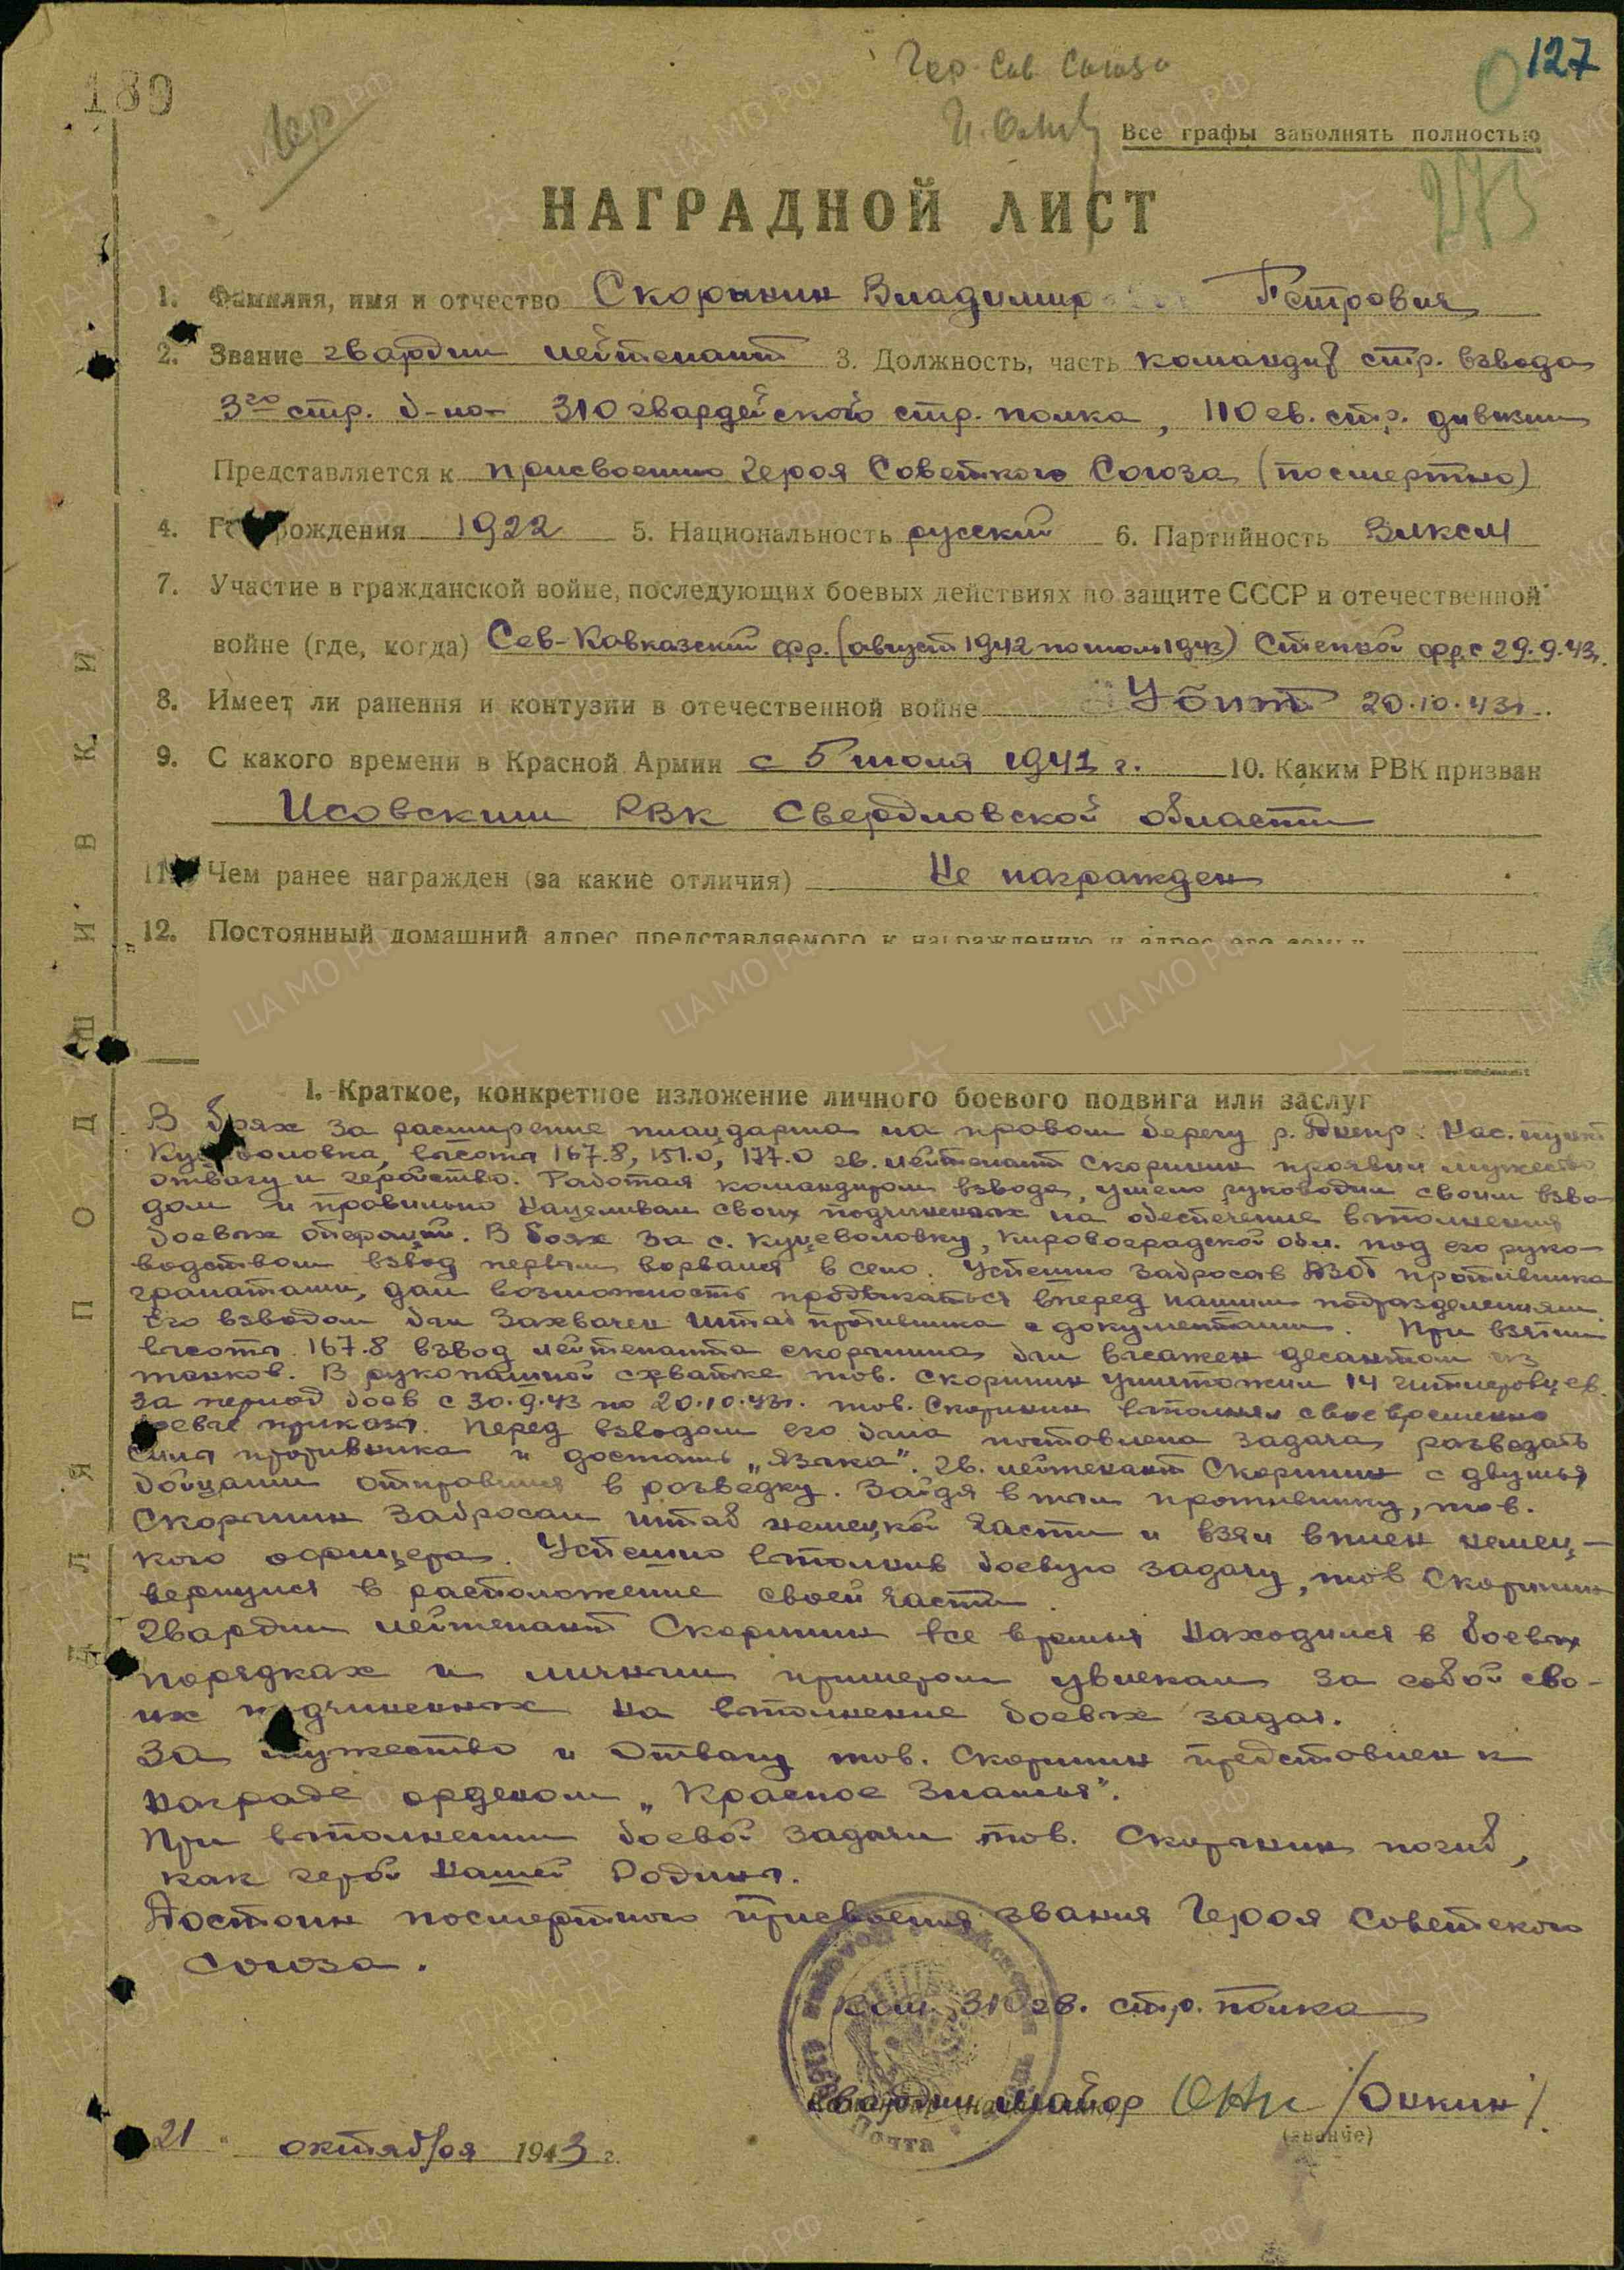 127
189
Гер
Гер. Сов. Союза
Все графы заполнять полностью
273
НАГРАДНОЙ ЛИСТ
1. Фамилия, имя и отчество Скорынин Владимир Петрович
2. Звание гвардии лейтенант 3. Должность, часть командир стр. взвода
3го стр. б-на 310 гвардейского стр. полка, 110 гв. стр. дивизии
Представляется к присвоению Героя Советского Союза (посмертно)
4. Год рождения 1922 5. Национальность русский 6. Партийность ВЛКСМ
7. Участие в гражданской войне, последующих боевых действиях по защите СССР и отечественной
войне (где, когда) Сев-Кавказский фр. (август 1942 по июль 1943) Степной фр. с 29.9.43г.
8. Имеет ли ранения и контузии в отечественной войне Убит 20.10.43г.
9. С какого времени в Красной Армии с 5 июля 1941 г. 10. Каким РВК призван
Исовским РВК Свердловской области
11. Чем ранее награжден (за какие отличия) Не награжден
12. Постоянный домашний адрес представляемого к награждению и адрес его семьи
ДЛЯ ПОДШИВКИ
1. Краткое, конкретное изложение личного боевого подвига или заслуг
В боях за расширение плацдарма на правом берегу р. Днепр. Нас. пункт
Куцеволовка, высоты 167.8, 151.0, 177.0 гв. лейтенант Скорынин проявил мужество
отвагу и геройство. Работая командиром взвода, умело руководил своим взво
дом и правильно нацеливал своих подчиненных на обеспечение выполнения
боевых операций. В боях за с. Куцеволовку, Кировоградской обл. под его руко-
водством взвод первым ворвался в село. Успешно забросав ДЗОТ противника
гранатами, дал возможность продвигаться вперед нашим подразделениям
Его взводом был захвачен штаб противника с документами. При взятии
высоты 167.8 взвод лейтенанта Скорынина был высажен десантом из
танков. В рукопашной схватке тов. Скорынин уничтожил 14 гитлеровцев.
За период боев с 30.9.43 по 20.10.43г. тов. Скорынин выполнял своевременно
боевые приказы. Перед взводом его была поставлена задача разведать
силы противника и достать „Языка". Гв. лейтенант Скорынин с двумя
бойцами отправился в разведку. Зайдя в тыл противнику, тов.
Скорынин забросал штаб немецкой части и взял в плен немец-
кого офицера. Успешно выполнив боевую задачу, тов Скорынин
вернулся в расположение своей части.
Гвардии лейтенант Скорынин все время находился в боевых
порядках и личным примером увлекал за собой сво-
их подчиненных на выполнение боевых задач.
За мужество и отвагу тов. Скорынин представлен к
награде орденом „Красное Знамья".
При выполнении боевой задачи тов. Скорынин погиб,
как герой нашей Родины.
Достоин посмертного присвоения звания Героя Советского
Союза.
Ком. 310 гв. стр. полка
Гвардии майор /Онкин/
(звание)
Почта
21 „ октября 1943 г.